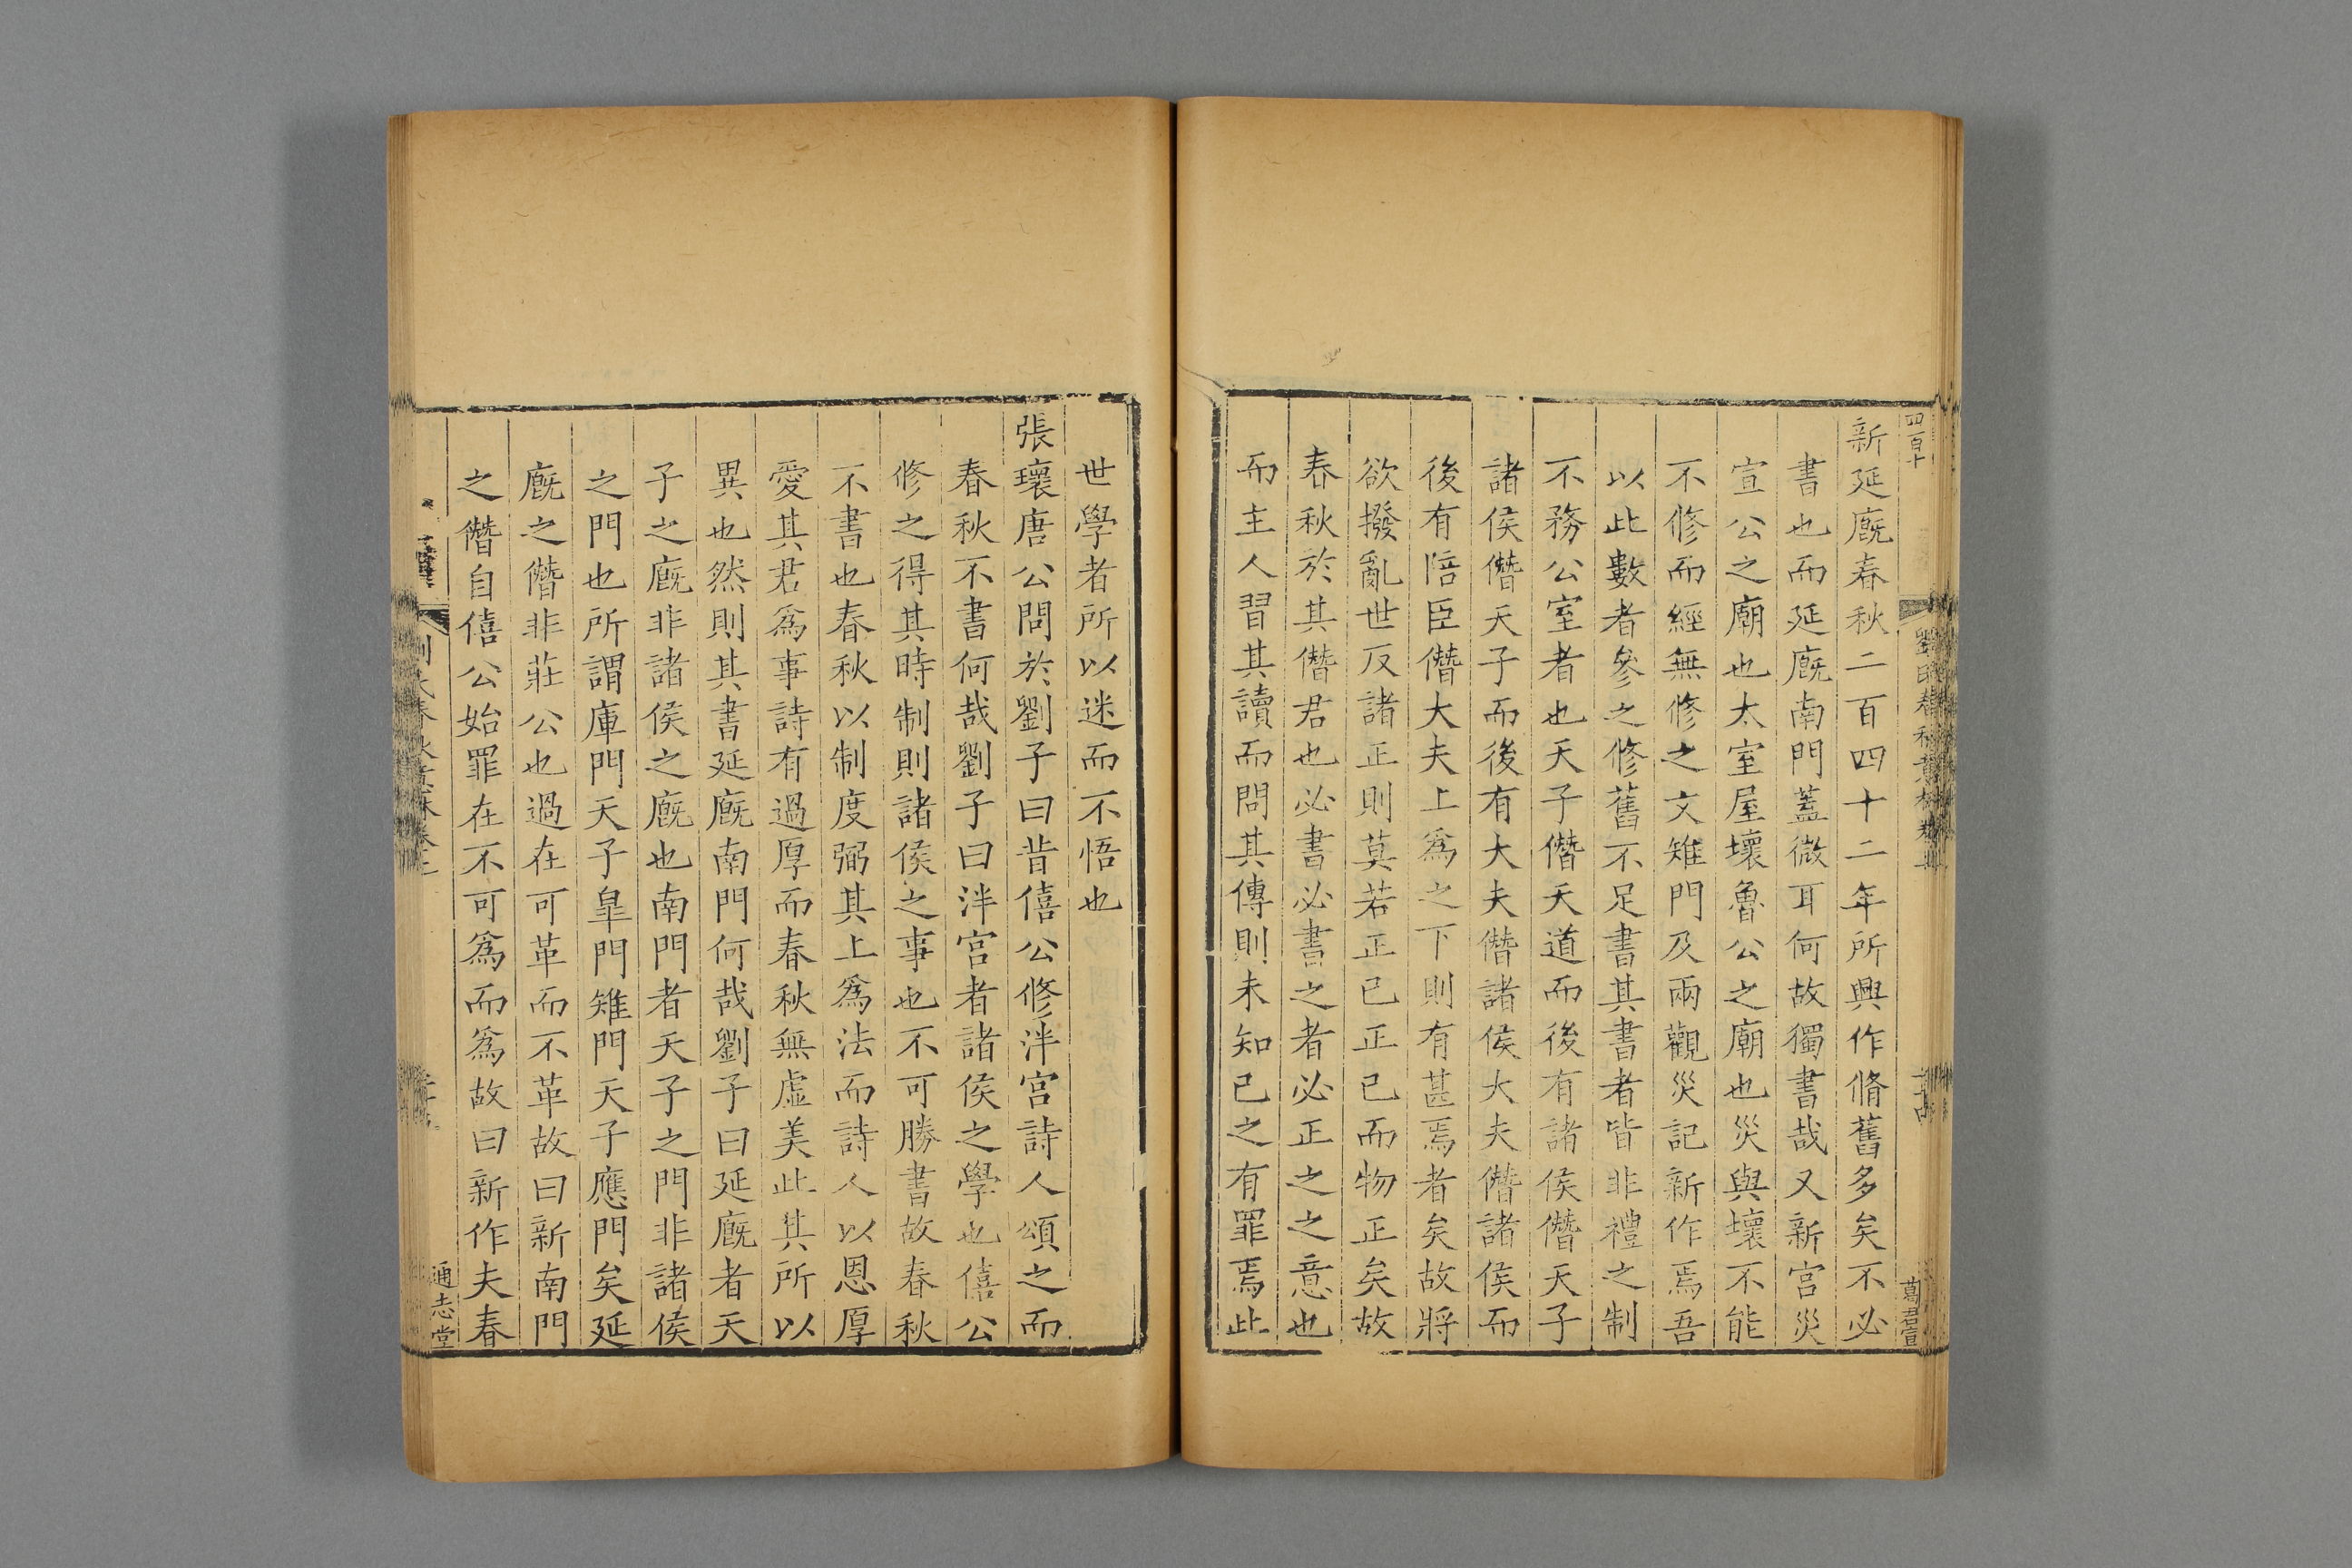 四百十
葛君宣
新延廐春秋二百四十二年所興作脩舊多矣不必
書也而延廐南門蓋微耳何故獨書哉又新宫災
宣公之廟也太室屋壞魯公之廟也災與壞不能
不修而經無修之文雉門及兩觀災記新作焉吾
以此數者參之修舊不足書其書者皆非禮之制
不務公室者也天子僭天道而後有諸侯僭天子
諸侯僭天子而後有大夫僭諸侯大夫僭諸侯而
後有陪臣僭大夫上爲之下則有甚焉者矣故將
欲撥亂世反諸正則莫若正已正已而物正矣故
春秋於其僭君也必書必書之者必正之之意也
而主人習其讀而問其傳則未知已之有罪焉此
世學者所以迷而不悟也
張瓌唐公問於劉子曰昔僖公修泮宫詩人頌之而
春秋不書何哉劉子曰泮宫者諸侯之學也僖公
修之得其時制則諸侯之事也不可勝書故春秋
不書也春秋以制度弼其上爲法而詩人以恩厚
愛其君爲事詩有過厚而春秋無虚美此其所以
異也然則其書延廐南門何哉劉子曰延廐者天
子之廐非諸侯之廐也南門者天子之門非諸侯
之門也所謂庫門天子臯門雉門天子應門矣延
廐之僭非莊公也過在可革而不革故曰新南門
之僭自僖公始罪在不可爲而爲故曰新作夫春
通志堂